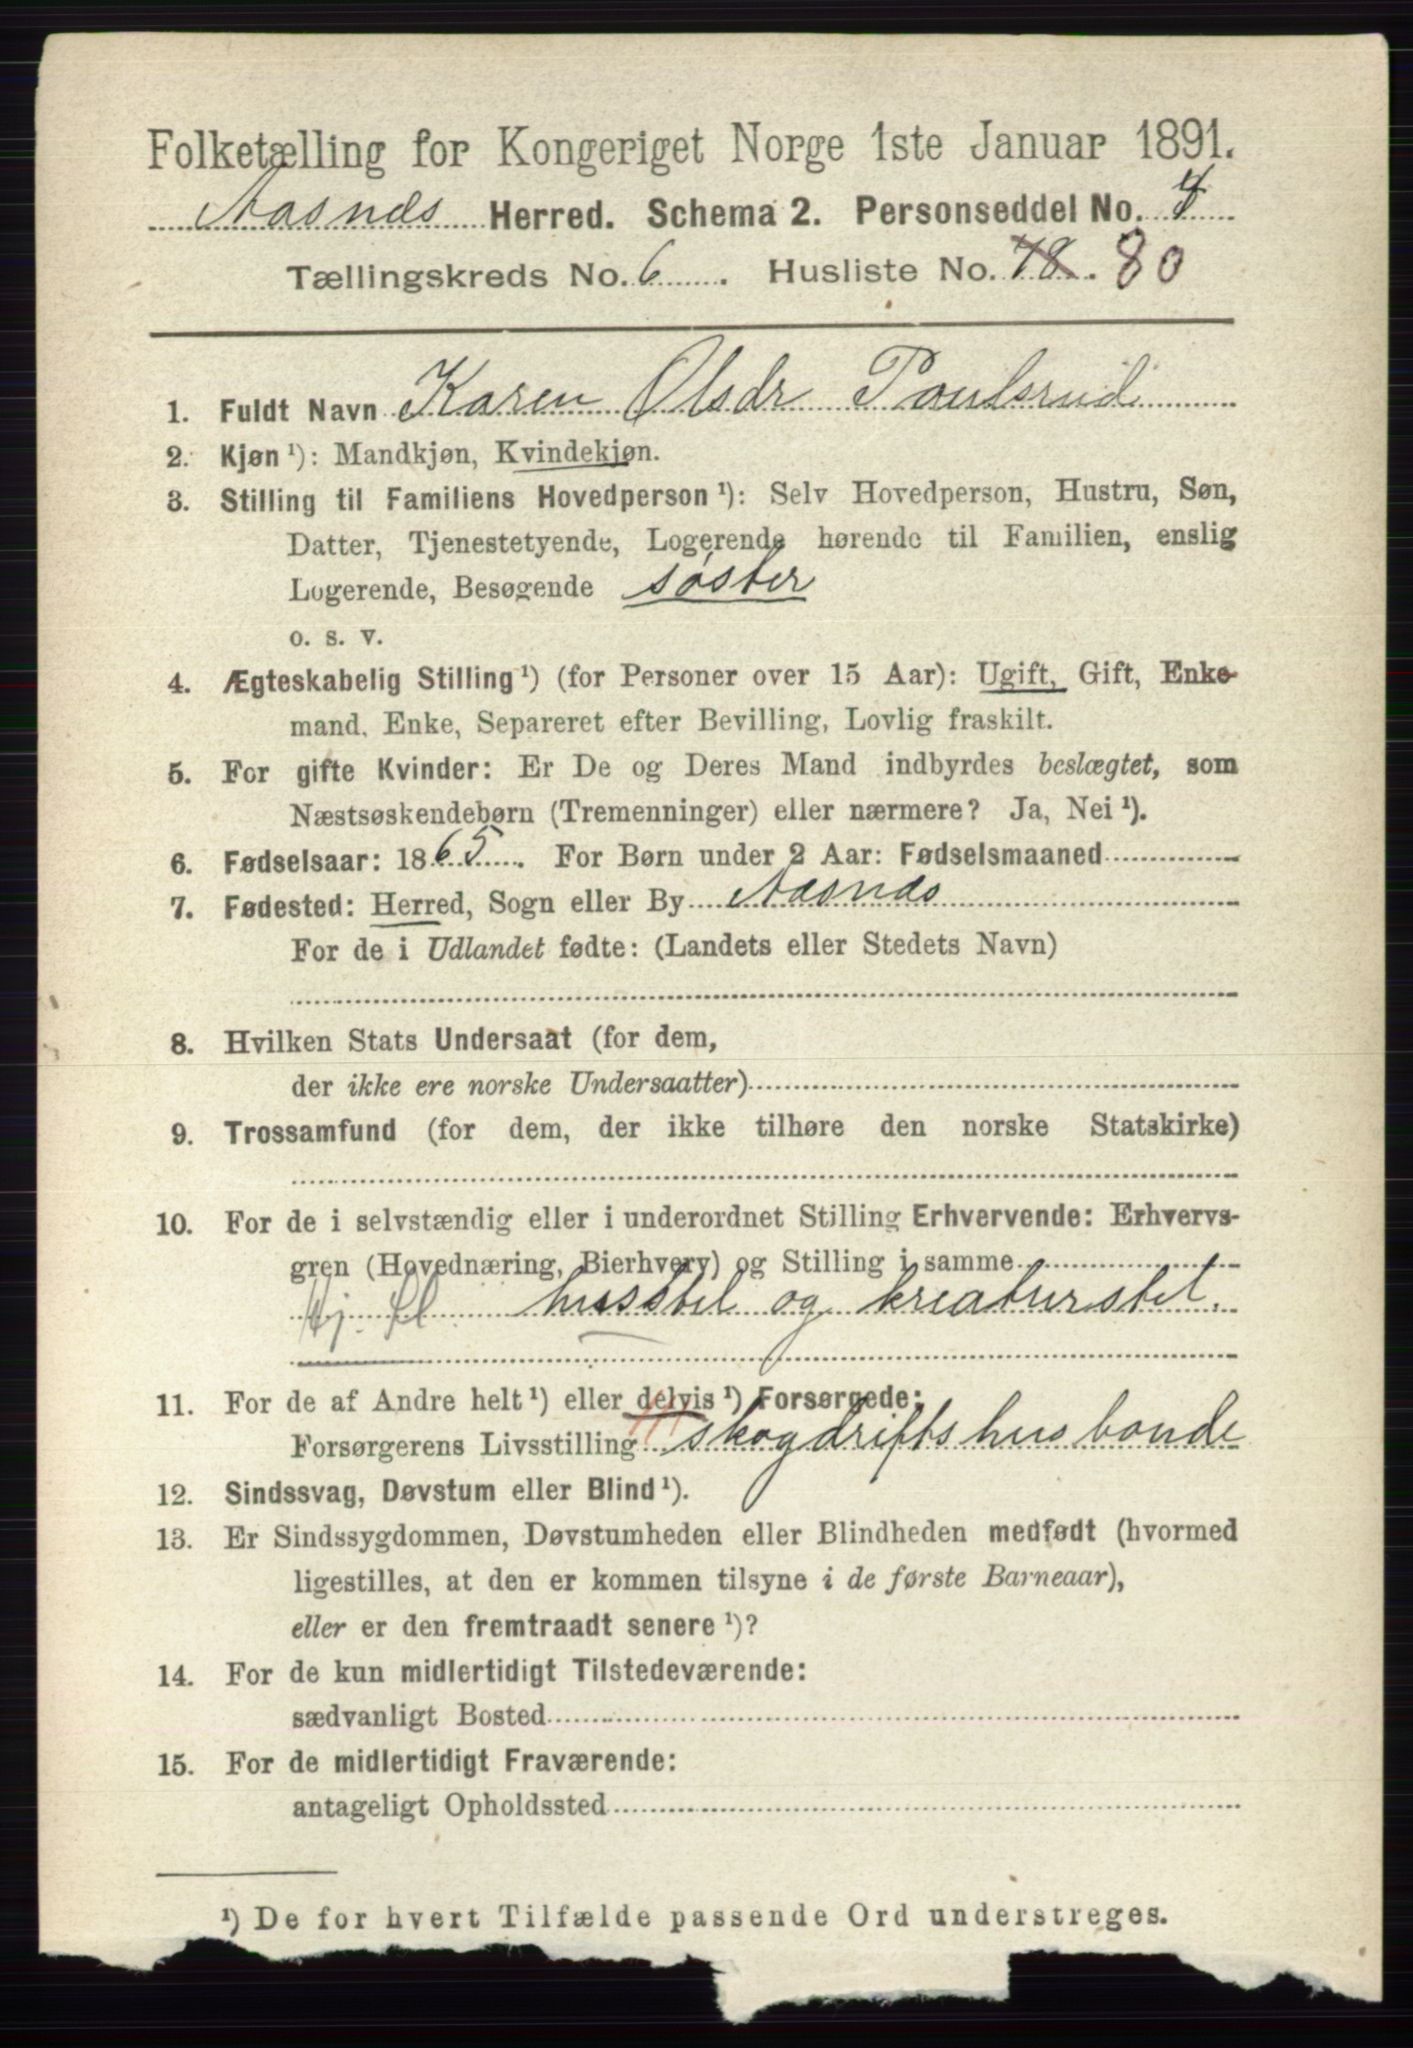 Folketælling for Kongeriget Norge 1ste Januar 1891.
Aasnæs Herred. Schema 2. Personseddel No. 4
Tællingskreds No. 6. Husliste No. 78. 80
1. Fuldt Navn Karen Olsdr Paulsrud
2. Kjøn ¹): Mandkjøn, Kvindekjøn.
3. Stilling til Familiens Hovedperson ¹): Selv Hovedperson, Hustru, Søn,
Datter, Tjenestetyende, Logerende hørende til Familien, enslig
Logerende, Besøgende søster
o. s. v.
4. Ægteskabelig Stilling ¹) (for Personer over 15 Aar): Ugift, Gift, Enke-
mand, Enke, Separeret efter Bevilling, Lovlig fraskilt.
5. For gifte Kvinder: Er De og Deres Mand indbyrdes beslægtet, som
Næstsøskendebørn (Tremenninger) eller nærmere? Ja, Nei ¹).
6. Fødselsaar: 1865. For Børn under 2 Aar: Fødselsmaaned
7. Fødested: Herred, Sogn eller By Aasnæs
For de i Udlandet fødte: (Landets eller Stedets Navn)
8. Hvilken Stats Undersaat (for dem,
der ikke ere norske Undersaatter)
9. Trossamfund (for dem, der ikke tilhøre den norske Statskirke)
10. For de i selvstændig eller i underordnet Stilling Erhvervende: Erhvervs-
gren (Hovednæring, Bierhverv) og Stilling i samme
husstel og kreaturstel.
11. For de af Andre helt ¹) eller delvis ¹) Forsørgede:
Forsørgerens Livsstilling skogdriftshusbonde
12. Sindssvag, Døvstum eller Blind ¹).
13. Er Sindssygdommen, Døvstumheden eller Blindheden medfødt (hvormed
ligestilles, at den er kommen tilsyne i de første Barneaar),
eller er den fremtraadt senere ¹)?
14. For de kun midlertidigt Tilstedeværende:
sædvanligt Bosted
15. For de midlertidigt Fraværende:
antageligt Opholdssted
¹) De for hvert Tilfælde passende Ord understreges.